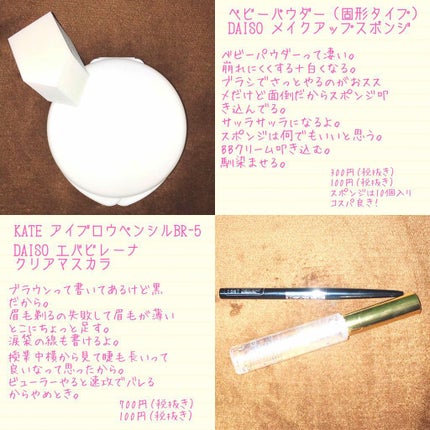 ベビーパウダー(固形タイプ)
DAISO メイクアップスポンジ
ベビーパウダーって凄い。
崩れにくくする+白くなる。
ブラシでさっとやるのがおスス
メだけど面倒だからスポンジ叩
き込んでる。
サッラサッラになるよ。
スポンジは何でもいいと思う。
BBクリーム叩き込む。
馴染ませる。
300円(税抜き)
100円(税抜き)
スポンジは10個入り
コスパ良き!
KATE アイブロウペンシルBR-5
DAISO エバビレーナ
クリアマスカラ
ブラウンって書いてあるけど黒
だから。
眉毛剃るの失敗して眉毛が薄い
とこにちょっと足す。
涙袋の線も書けるよ。
授業中横から見て睫毛長いって
良いなって思ったから。
ビューラーやると速攻でバレる
からやめとき。
700円(税抜き)
100円(税抜き)